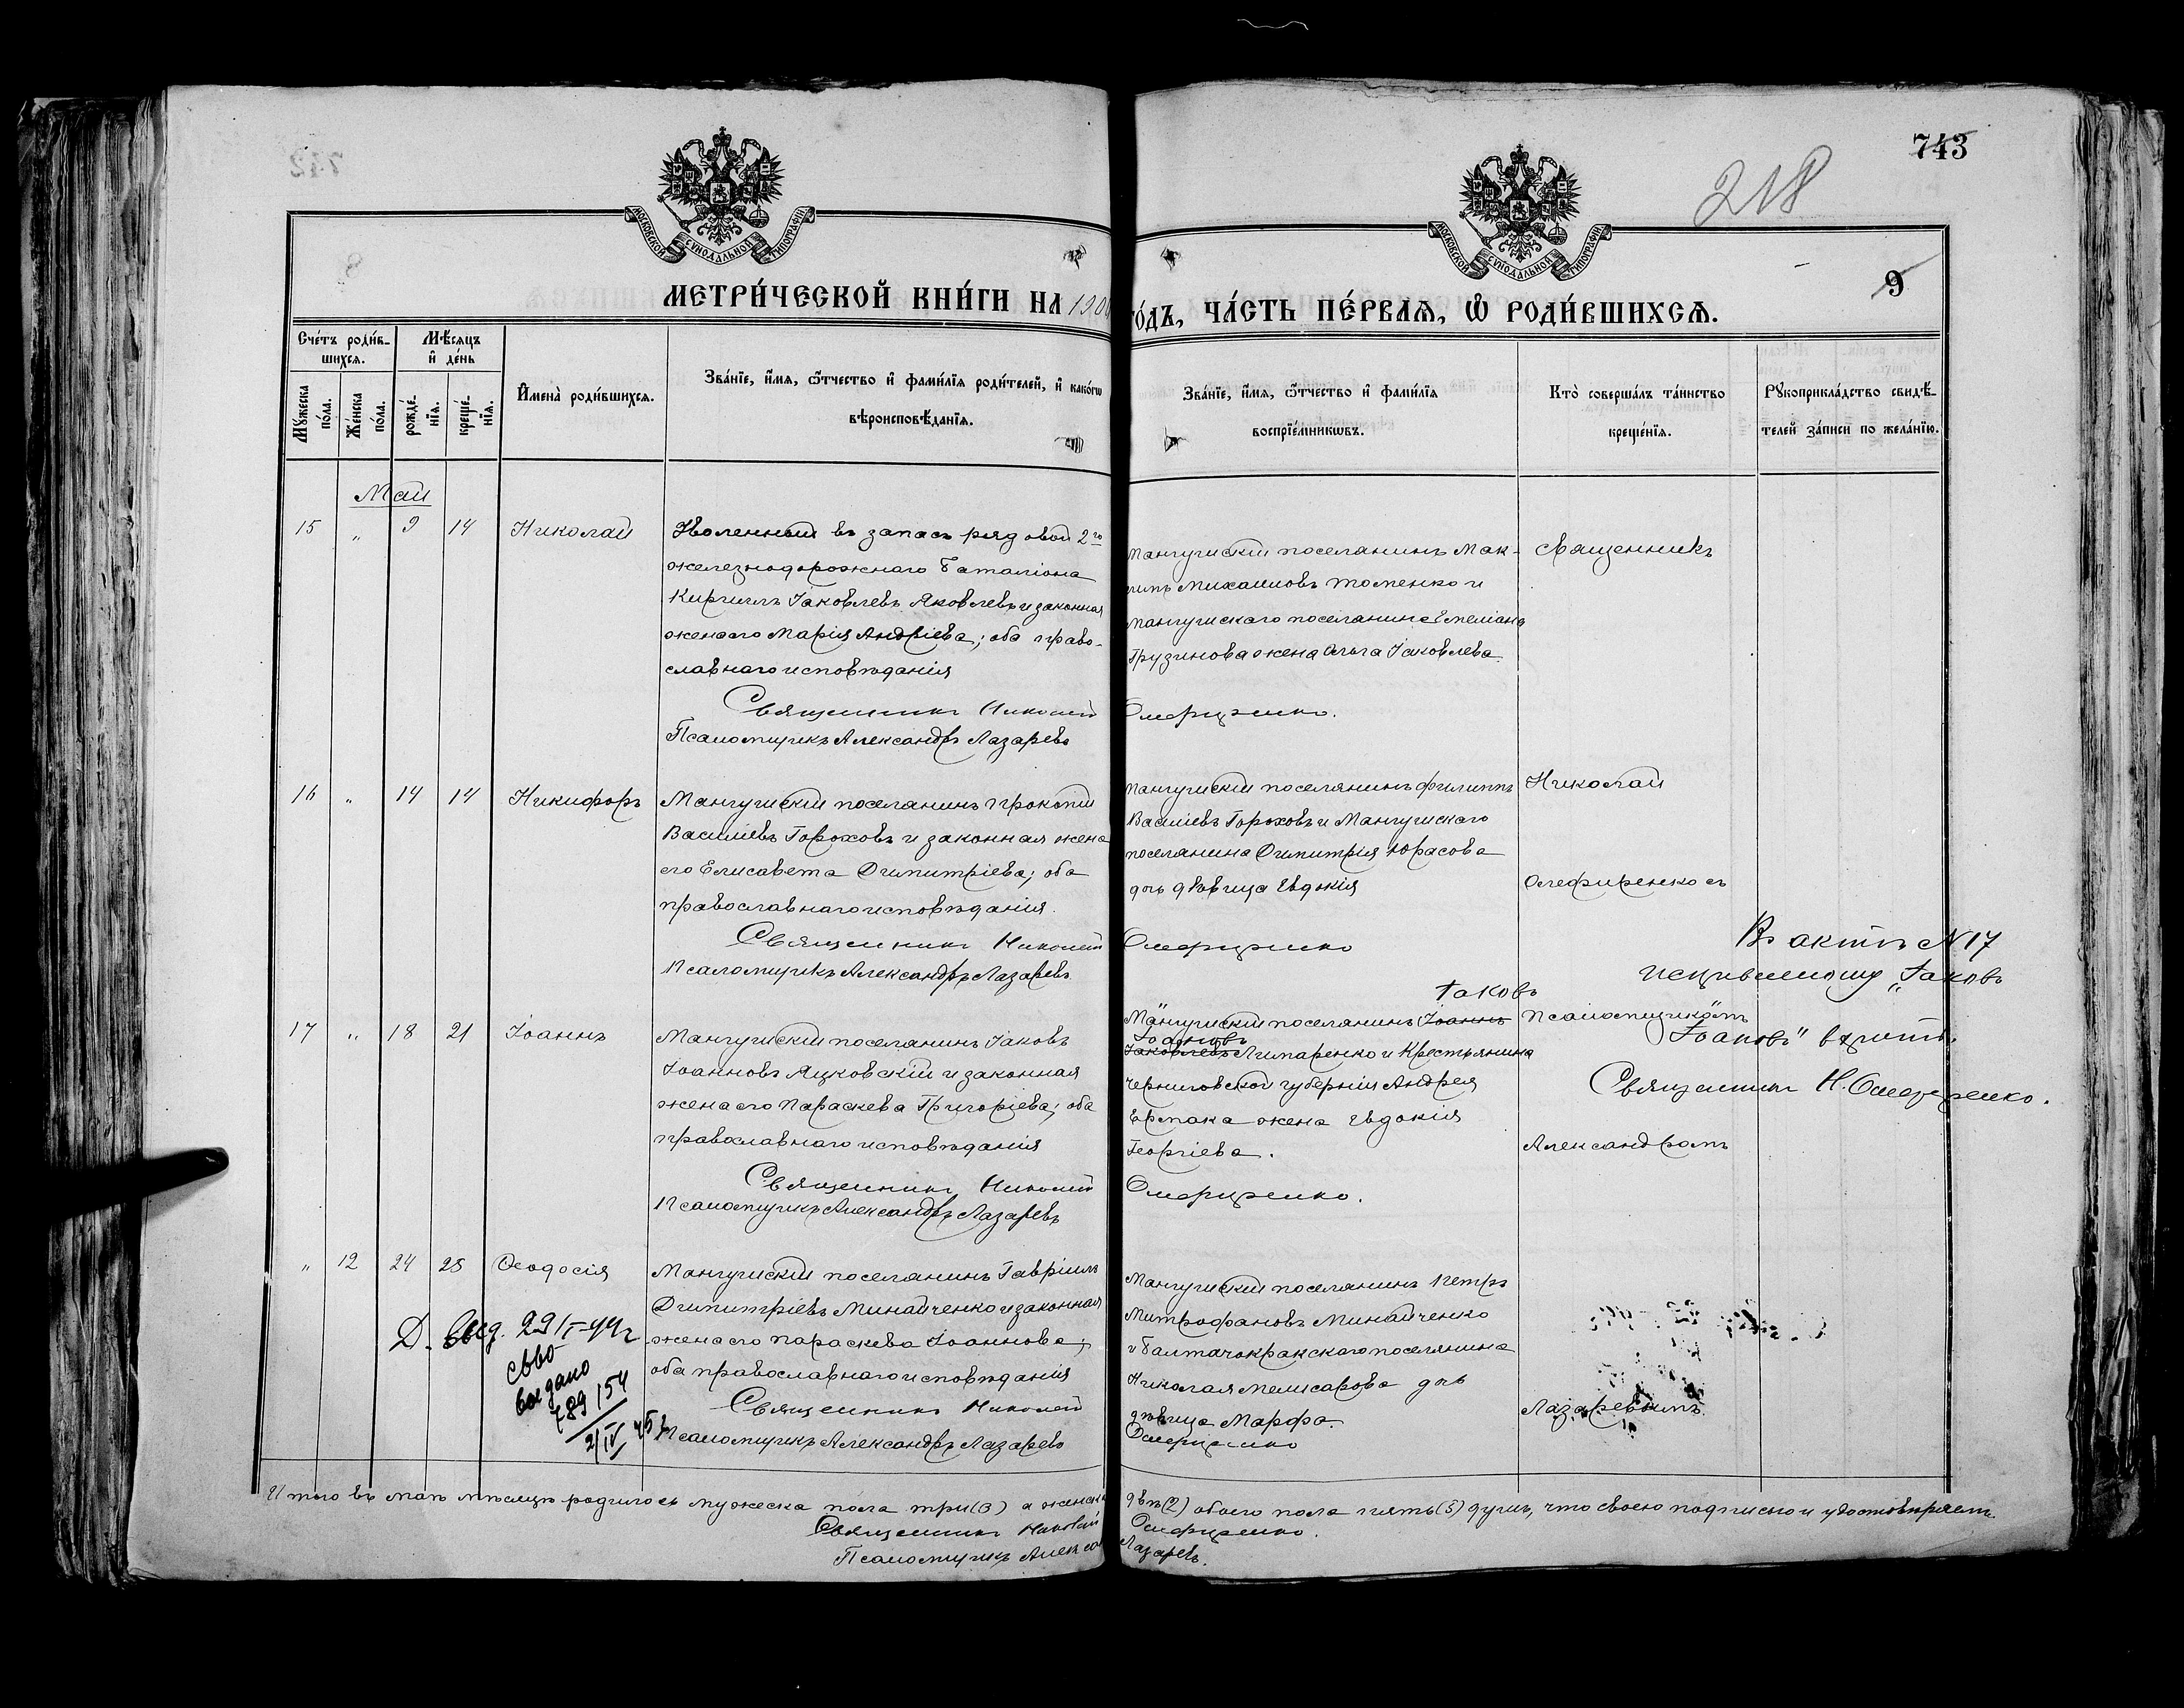 743
218
МОСКОВСКОЙ СѴНОДАЛЬНОЙ ТИПОГРАФІИ
МОСКОВСКОЙ СѴНОДАЛЬНОЙ ТИПОГРАФІИ
9
МЕТРИ́ЧЕСКОЙ КНИ́ГИ НА 190
ГО́ДЪ, ЧА́СТЬ ПЕ́РВАѦ, Ѽ РОДИ́ВШИХСѦ.
Сче́тъ роди́в-
шихсѧ.
Мѣ́сѧцъ
и҆ де́нь
Мꙋ́жеска
по́ла.
Же́нска
по́ла.
рожде́-
нїѧ.
креще́-
нїѧ.
И҆мена̀ роди́вшихсѧ.
Зва́нїе, и҆́мѧ, ѻ҆́тчество и҆ фами́лїѧ роди́телей, и҆ како́гѡ
вѣроисповѣ́данїѧ.
Зва́нїе, и҆́мѧ, ѻ҆́тчество и҆ фами́лїѧ
воспрїе́мникѡвъ.
Кто̀ соверша́лъ та́инство
креще́нїѧ.
Рꙋкоприкла́дство свидѣ́-
телей за́писи по жела́нїю.
Май
15 " 9 14 Николай
Уволенный въ запасъ рядовой 2го
железнодорожнаго баталіона
Кириллъ Іаковлевъ Яковлевъ и законная
жена его Марія Андріева; оба право-
славнаго исповѣданія
Священникъ Николай
Псаломщикъ Александръ Лазаревъ
Мангушскій поселянинъ Мак-
Михаиловъ Томенко и
мангушскаго поселянина Емеліана
Грузинова жена Ольга Іаковлева.
Олефиренко.
Священникъ
16 " 14 14 Никифоръ
Мангушскій поселянинъ Прокопій
Василіевъ Гороховъ и законная жена
его Елисавета Димитріева; оба
православнаго исповѣданія.
Священникъ Николай
Псаломщикъ Александръ Лазаревъ
Мангушскій поселянинъ Филиппъ
Василіевъ Гороховъ и Мангушскаго
поселянина Димитрія Юрасова
дочь дѣвица Евдокія
Олефиренко
Николай
Олефиренко съ
Въ актѣ N 17
исправленному „Іаковъ
Іоановъ" вѣрить.
Священникъ Н. Олефиренко.
17 " 18 21 Іоаннъ
Мангушскій поселянинъ Іаковъ
Іоанновъ Яцковскій и законная
жена его Параскева Григоріева; оба
православнаго исповѣданія
Священникъ Николай
Псаломщикъ Александръ Лазаревъ
Іаковъ
Мангушскій поселянинъ Іоаннъ
Іоановъ
Іаковлевъ Лимаренко и Крестьянина
Черниговской губерніи Андрея
Ермака жена Евдокія
Георгіева.
Олефиренко.
Псаломщикомъ
Александромъ
" 12 24 28 Ѳеодосія
Мангушскій поселянинъ Гавріилъ
Димитріевъ Минайченко и законная
жена его Параскева Іоаннова;
оба православнаго исповѣданія
Священникъ Николай
Псаломщикъ Александръ Лазаревъ
Д. выд. 29/I-44г
свво
выдано
789154
2/IV 45г
Мангушскій поселянинъ Петръ
Митрофановъ Минайченко
и Балтачокракскаго поселянина
Николая Мелисарова дочь
дѣвица Марфа.
Олефиренко
Лазаревымъ.
Итого въ маѣ мѣсяцѣ родилось мужеска пола три (3) а женска
двѣ (2) обоего пола пять (5) душъ, что своею подписью и удостовѣряемъ.
Священникъ Николай
Олефиренко.
Псаломщикъ Алекса
Лазаревъ.